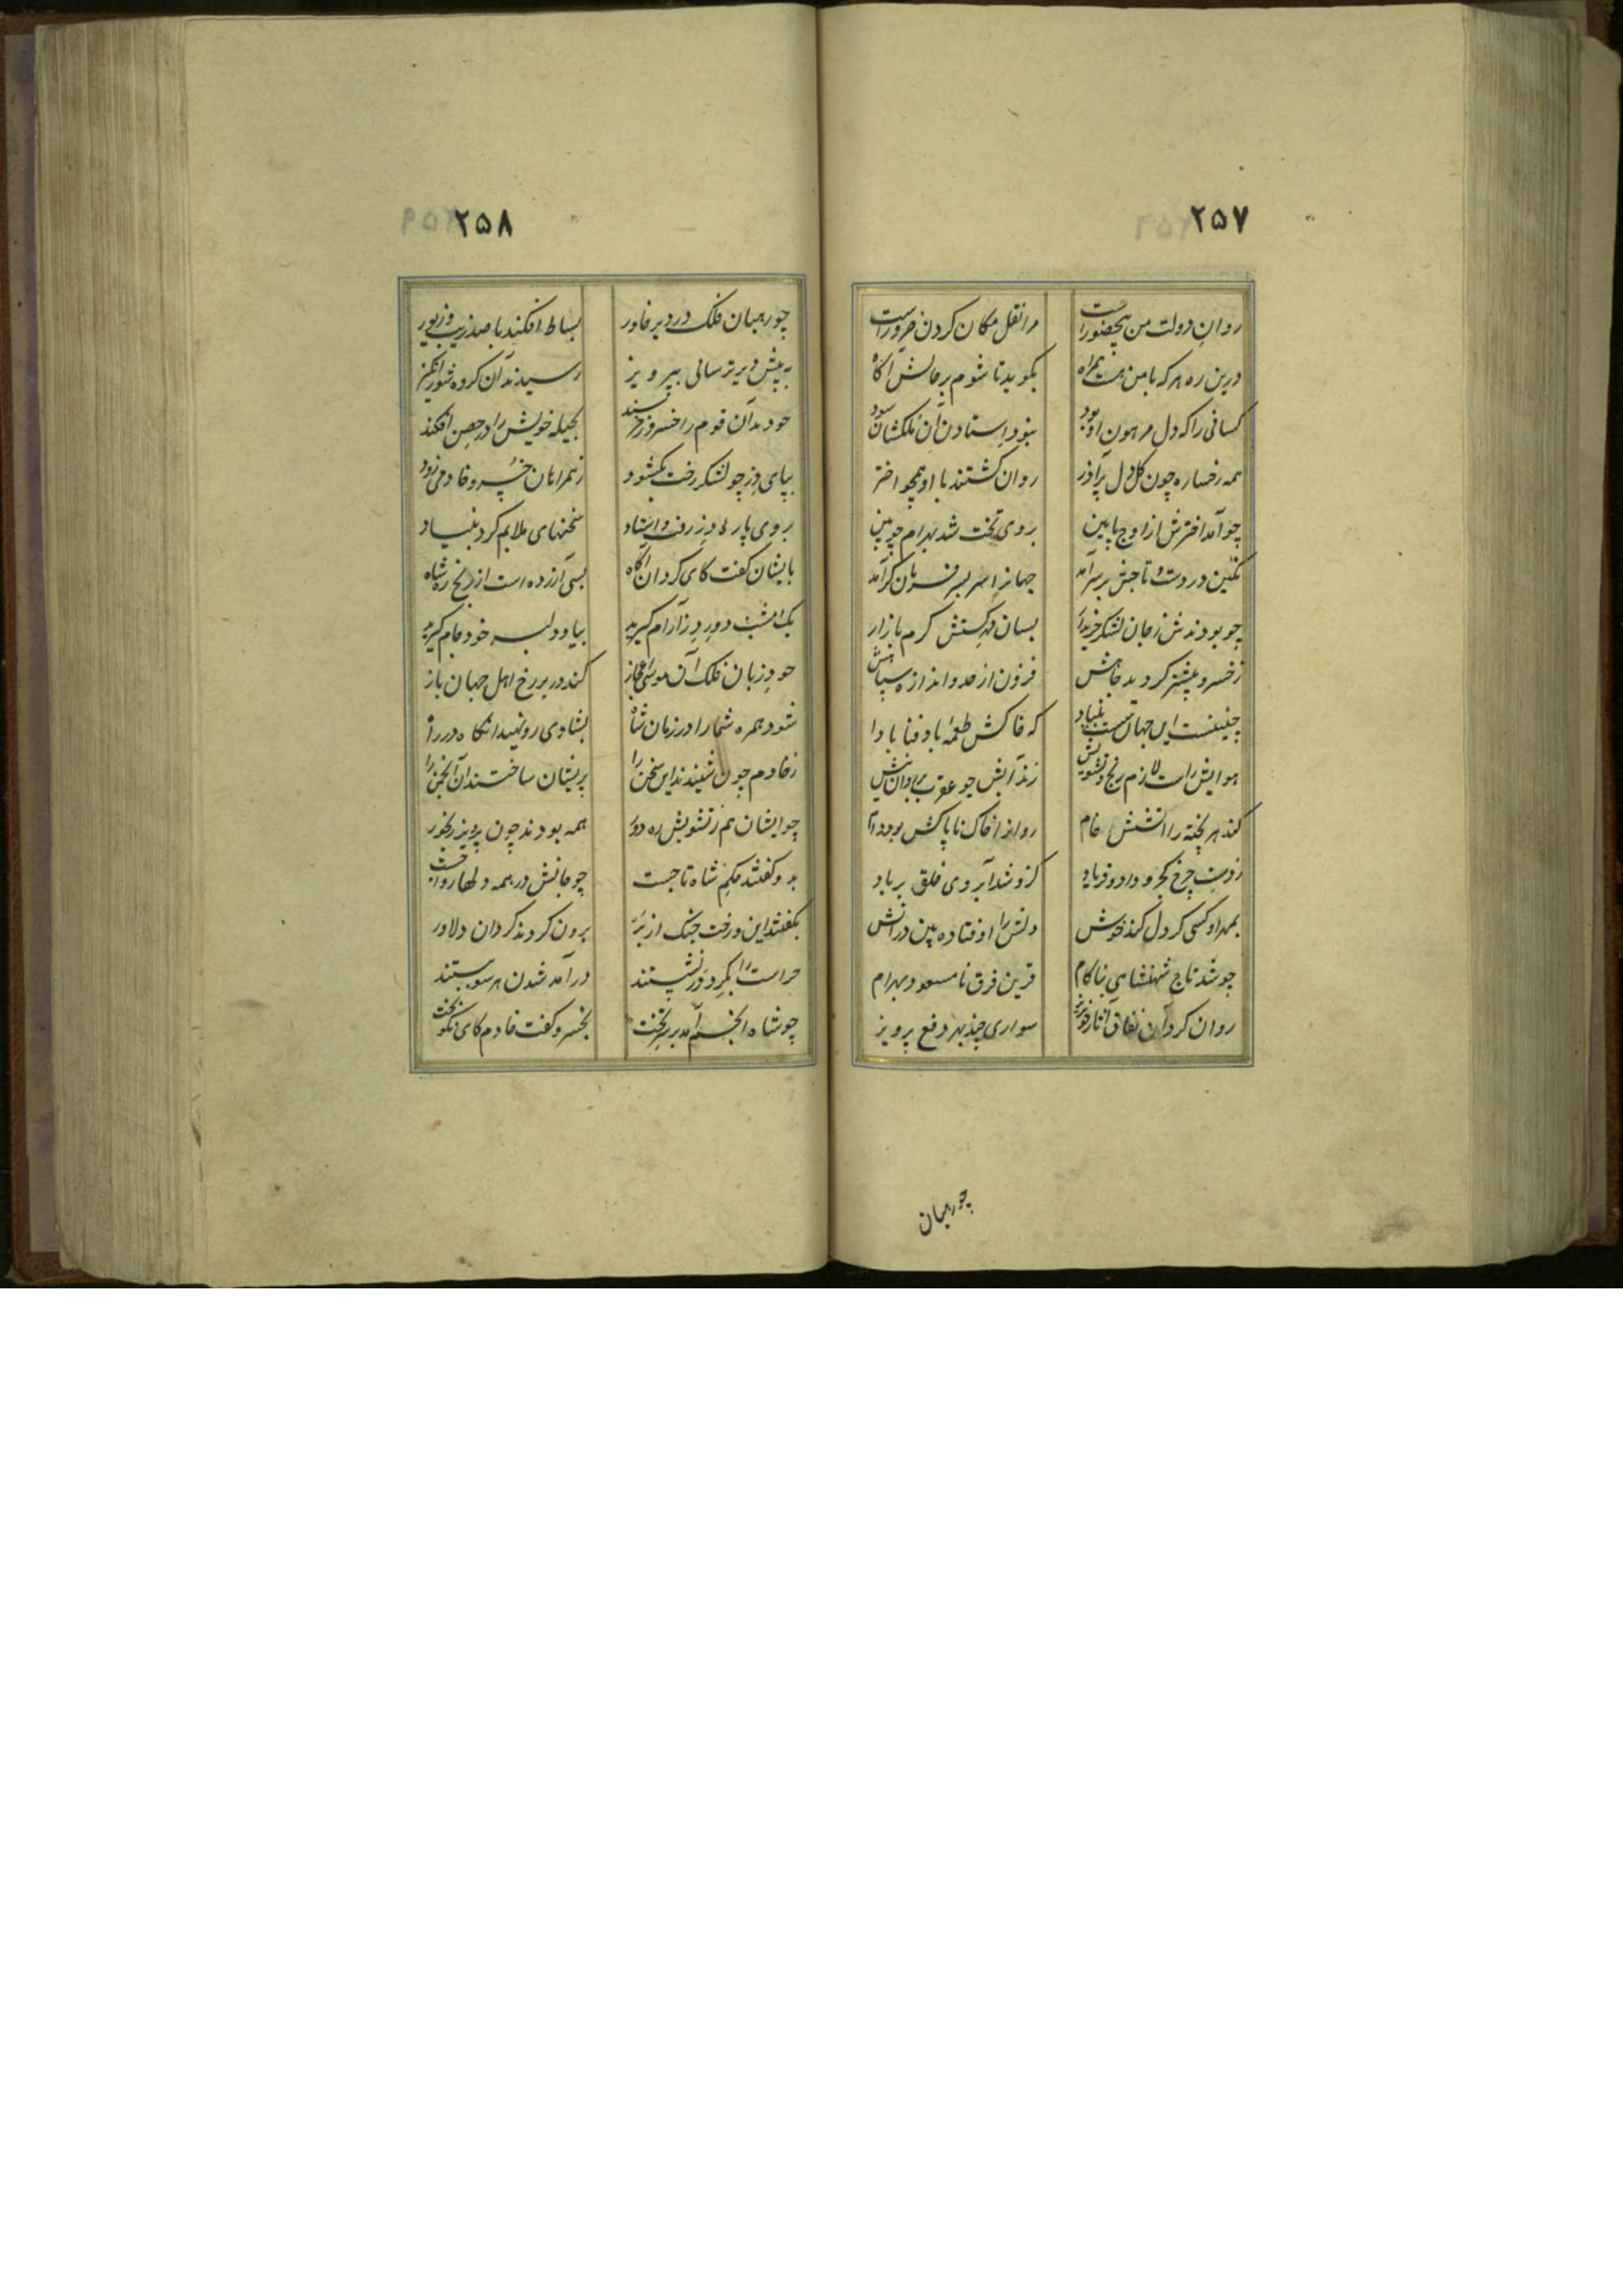 ۲۵۷
روان دولت من بیحضور است مرا نقل مکان کردن ضرور است
درین ره هر که با من هست همراه بگوید تا شوم بر حالش آگاه
کسانی را که دل مرهون او بود نبود استادن آن ملکشان سود
همه رخساره چون گل دل پر آذر روان گشتند با او همچو اختر
چو آمد اخترش از اوج پایین بروی تخت شد بهرام چوبین
نگین در دست و تاجش بر سر آمد جهانرا سر بسر فرمان گر آمد
چو بودندش ز جان لشکر خریدار بسان مهر گشتش گرم بازار
ز خسرو بیشتر گردید جاهش فزون از حد و اندازه سپاهش
چنینست این جهان سست بنیاد که خاکش طعمهٔ باد فنا باد ا
هوایش راست لازم رنج و تشویش زند آبش چو عقرب بر روان نیش
کند هر پخته را آتشش خام روان از خاک ناپاکش بود دام
ز دست چرخ کجرو داد و فریاد کزو شد آبروی خلق بر باد
بمهر او کسی کز دل کند خوش دلش را اوفتاده بین در آتش
چو شد تاج شهنشاهی بناکام قرین فرق نامسعود بهرام
روان کرد آن نفاق آثار خونریز سواری چند بهر دفع پرویز
چو رهبان
۲۵۸
چو رهبان فلک در دیر خاور بساط افکند با صد زیب و زیور
به پیش دیر ترسائی بپرویز رسیدند آن گروه شورانگیز
چو دید آن قوم را خسرو ز خرسند بحیله خویش را در حصن افکند
بپای دز چو لشکر رخت بگشود ز همراهان خسرو خادمی زود
بروی باره دز رفت و استاد سخنهای ملایم کرد بنیاد
بایشان گفت کای گردان آگاه بسی آزرده است از رنج ره شاه
یک امشب دور دز آرام گیرید بیاد لب خود جام گیرید
چو دزبان فلک آن موسی اعجاز کند در بر رخ اهل جهان باز
شود همره شما را در زمان شاه بشادی رو نهید آنگاه در راه
ز خادم چون شنیدند این سخن را پریشان ساختند آن انجمن را
چو ایشان هم ز تشویش ره دور همه بودند چون پرویز رنجور
بدو گفتند حکم شاه تا جست چو جانش در همه دلها روا جست
بگفتند این و رخت جنگ از بر برون کردند گردان دلاور
حراست را بگرد دز نشستند در آمد شدن هر سو ببستند
چو شاه انجم آمد بر سر تخت بخسرو گفت خادم کای نکو بخت